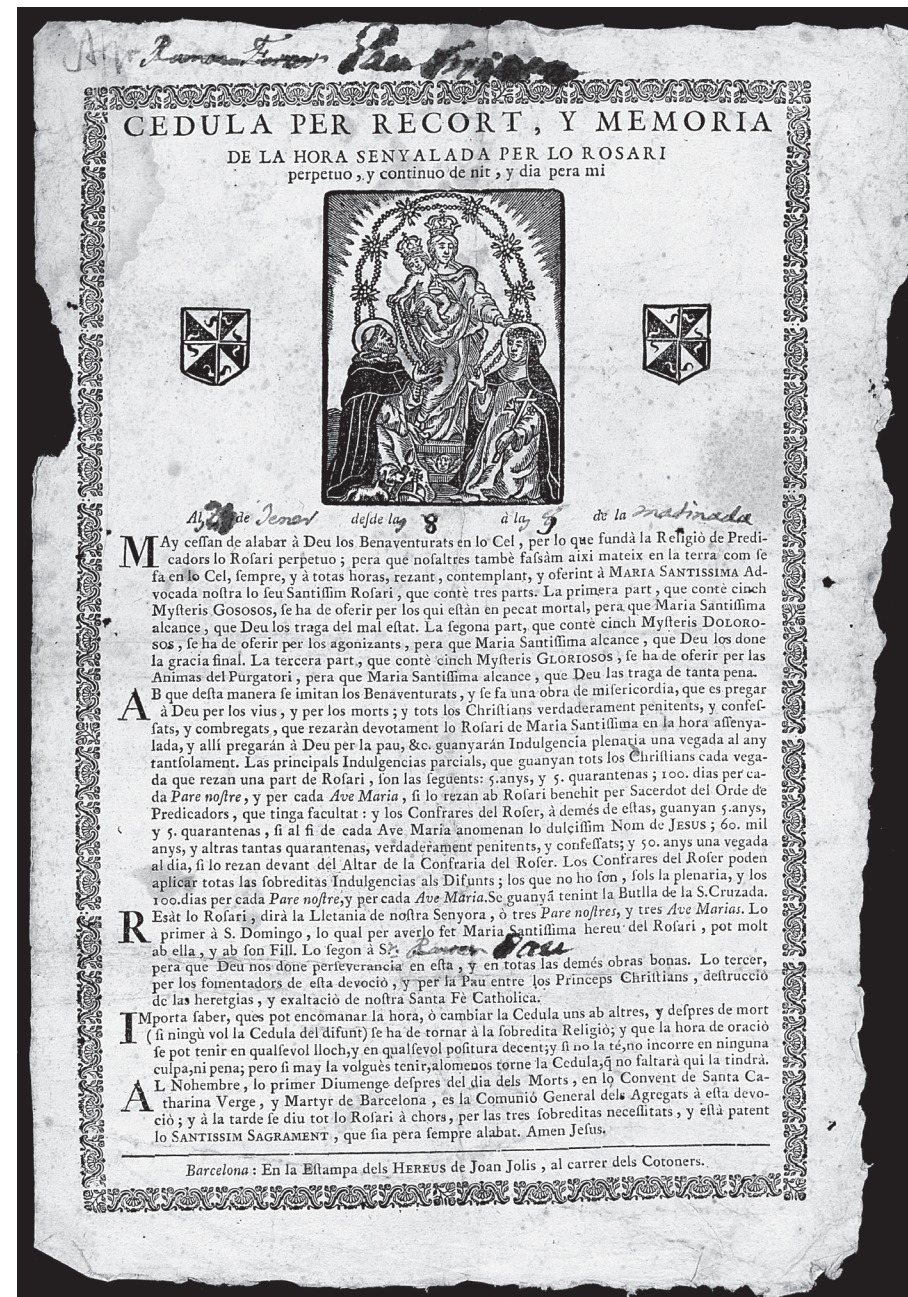 Ramon Ferrer Pau
CEDULA PER RECORT, Y MEMORIA
DE LA HORA SENYALADA PER LO ROSARI
perpetuo, y continuo de nit, y dia pera mi
Al de Jener deſde las 8 à las 9 de la matinada
MAy ceſſan de alabar à Deu los Benaventurats en lo Cel, per lo que fundà la Religiò de Predi-
cadors lo Rofari perpetuo; pera que noſaltres tambè faſsàm aixi mateix en la terra com ſe
fa en lo Cel, ſempre, y à totas horas, rezant, contemplant, y oferint à MARIA SANTISSIMA Ad-
vocada noſtra lo ſeu Santiſſim Roſari, que contè tres parts. La primera part, que contè cinch
Myſteris GOSOSOS, ſe ha de oferir per los qui eſtàn en pecat mortal, pera que Maria Santiſſima
alcance, que Deu los traga del mal eſtat. La ſegona part, que contè cinch Myſteris DOLORO-
SOS, ſe ha de oferir per los agonizants, pera que Maria Santiſſima alcance, que Deu los done
la gracia final. La tercera part, que contè cinch Myſteris GLORIOSOS, ſe ha de oferir per las
Animas del Purgatori, pera que Maria Santiſſima alcance, que Deu las traga de tanta pena.
AB que deſta manera ſe imitan los Benaventurats, y ſe fa una obra de miſericordia, que es pregar
à Deu per los vius, y per los morts; y tots los Chriſtians verdaderament penitents, y confeſ-
ſats, y combregats, que rezaràn devotament lo Roſari de Maria Santiſſima en la hora aſſenya-
lada, y allí pregarán à Deu per la pau, &c. guanyarán Indulgencia plenaria una vegada al any
tantſolament. Las principals Indulgencias parcials, que guanyan tots los Chriſtians cada vega-
da que rezan una part de Roſari, ſon las ſeguents: 5.anys, y 5. quarantenas; 100. dias per ca-
da Pare noſtre, y per cada Ave Maria, ſi lo rezan ab Roſari benehit per Sacerdot del Orde de
Predicadors, que tinga facultat: y los Confrares del Roſer, à demés de eſtas, guanyan 5.anys,
y 5. quarantenas, ſi al fi de cada Ave Maria anomenan lo dulçiſſim Nom de JESUS; 60. mil
anys, y altras tantas quarantenas, verdaderament penitents, y confeſſats; y 50. anys una vegada
al dia, ſi lo rezan devant del Altar de la Confraria del Roſer. Los Confrares del Roſer poden
aplicar totas las ſobreditas Indulgencias als Difunts; los que no ho ſon, ſols la plenaria, y los
100.dias per cada Pare noſtre, y per cada Ave Maria. Se guanyã tenint la Butlla de la S.Cruzada.
REsàt lo Roſari, dirà la Lletania de noſtra Senyora, ò tres Pare noſtres, y tres Ave Marias. Lo
primer à S. Domingo, lo qual per averlo fet Maria Santiſſima hereu del Roſari, pot molt
ab ella, y ab ſon Fill. Lo ſegon à St. Ramon Pau
pera que Deu nos done perſeverancia en eſta, y en totas las demés obras bonas. Lo tercer,
per los fomentadors de eſta devociò, y per la Pau entre los Princeps Chriſtians, deſtrucciò
de las heretgias, y exaltaciò de noſtra Santa Fè Catholica.
IMporta ſaber, ques pot encomanar la hora, ò cambiar la Cedula uns ab altres, y deſpres de mort
(ſi ningù vol la Cedula del difunt) ſe ha de tornar à la ſobredita Religiò; y que la hora de oraciò
ſe pot tenir en qualſevol lloch, y en qualſevol poſitura decent; y ſi no la té, no incorre en ninguna
culpa, ni pena; pero ſi may la volguès tenir, alomenos torne la Cedula, q̃ no faltarà qui la tindrà.
AL Nohembre, lo primer Diumenge deſpres del dia dels Morts, en lo Convent de Santa Ca-
tharina Verge, y Martyr de Barcelona, es la Comuniò General dels Agregats à eſta devo-
ciò; y à la tarde ſe diu tot lo Roſari à chors, per las tres ſobreditas neceſſitats, y eſtà patent
lo SANTISSIM SAGRAMENT, que ſia pera ſempre alabat. Amen Jeſus.
Barcelona: En la Eſtampa dels HEREUS de Joan Jolis, al carrer dels Cotoners.